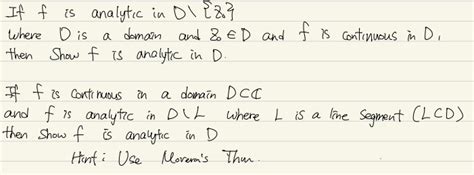 If f is analytic in D\{z₀}
where D is a domain and z₀ ∈ D and f is continuous in D,
then Show f is analytic in D.
If f is continuous in a domain D⊂ℂ
and f is analytic in D\L where L is a line segment (L⊂D)
then show f is analytic in D
Hint: Use Morera's Thm.